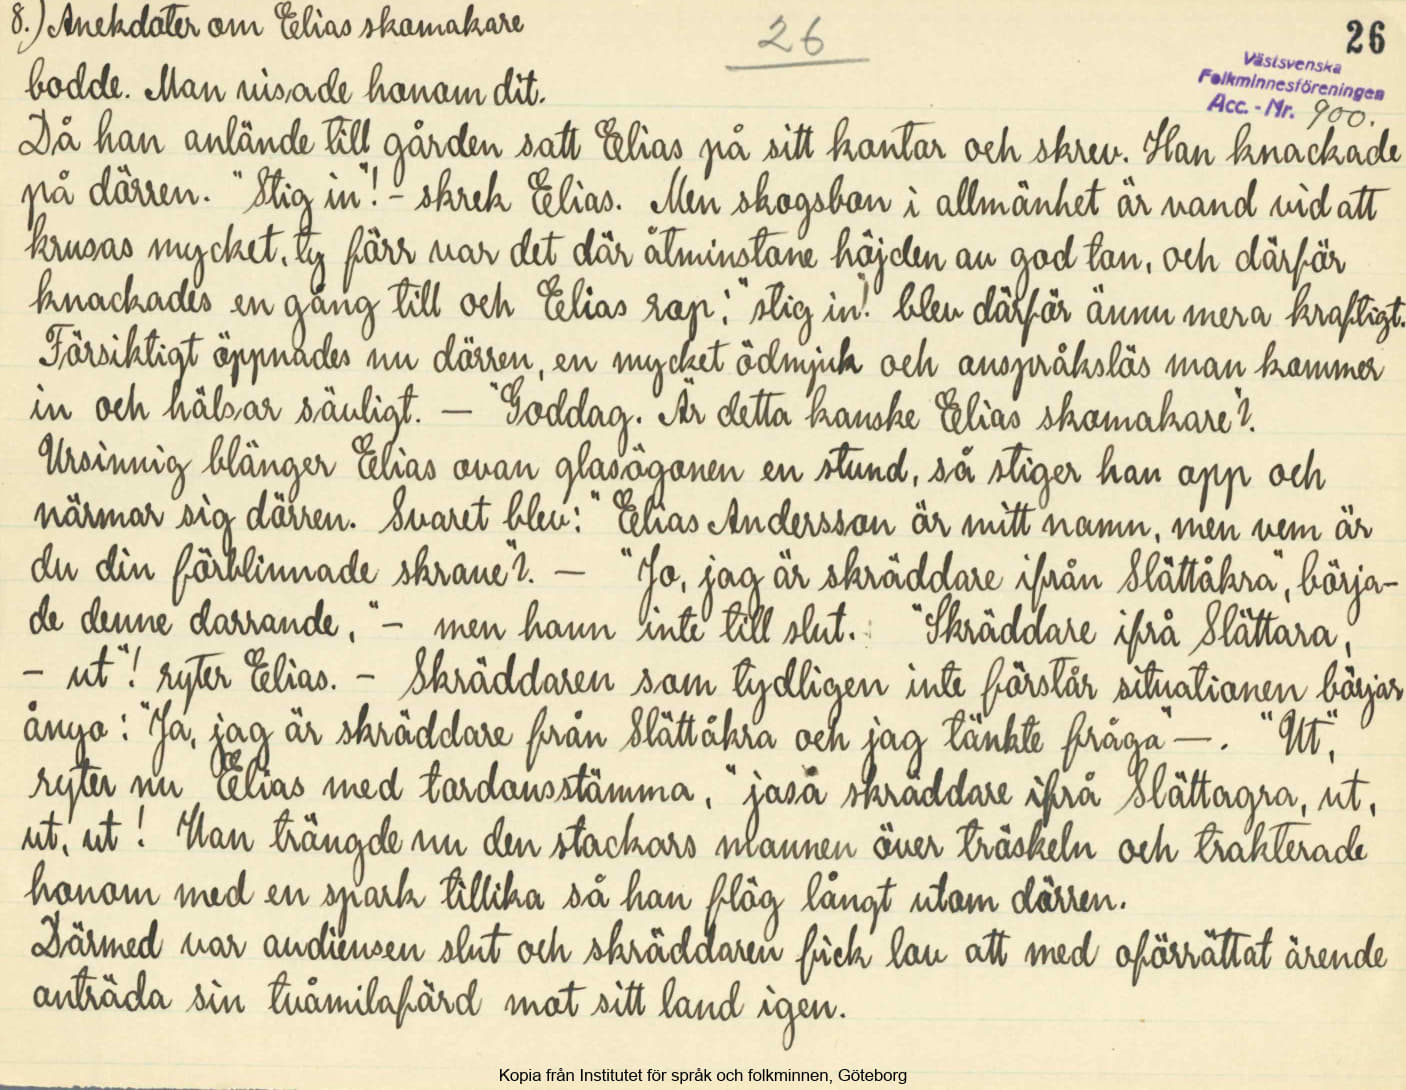 8.) Anekdoter om Elias skomakare
26
26
Västsvenska
Folkminnesföreningen
Acc. - Nr. 900.
bodde. Man visade honom dit.
Då han anlände till gården satt Elias på sitt kontor och skrev. Han knackade
på dörren. "Stig in"! - skrek Elias. Men skogsbon i allmänhet är vand vid att
krusas mycket, ty förr var det där åtminstone höjden av god ton, och därför
knackades en gång till och Elias rop; "stig in"! blev därför ännu mera kraftigt.
Försiktigt öppnades nu dörren, en mycket ödmjuk och anspråkslös man kommer
in och hälsar såvligt. — "Goddag. Är detta kanske Elias skomakare"?.
Ursinnig blänger Elias ovan glasögonen en stund, så stiger han opp och
närmar sig dörren. Svaret blev: "Elias Andersson är mitt namn, men vem är
du din förblinnade skrave"?. — "Jo, jag är skräddare ifrån Slättåkra", börja-
de denne darrande, "- men hann inte till slut. "Skräddare ifrå Slättara,
- ut"! ryter Elias. - Skräddaren som tydligen inte förstår situationen börjar
ånyo: "Ja, jag är skräddare från Slättåkra och jag tänkte fråga" —. "Ut",
ryter nu Elias med tordönsstämma, "jaså skräddare ifrå Slättagra, ut,
ut, ut! Han trängde nu den stackars mannen över tröskeln och trakterade
honom med en spark tillika så han flög långt utom dörren.
Därmed var audiensen slut och skräddaren fick lov att med oförrättat ärende
anträda sin tvåmilafärd mot sitt land igen.
Kopia från Institutet för språk och folkminnen, Göteborg